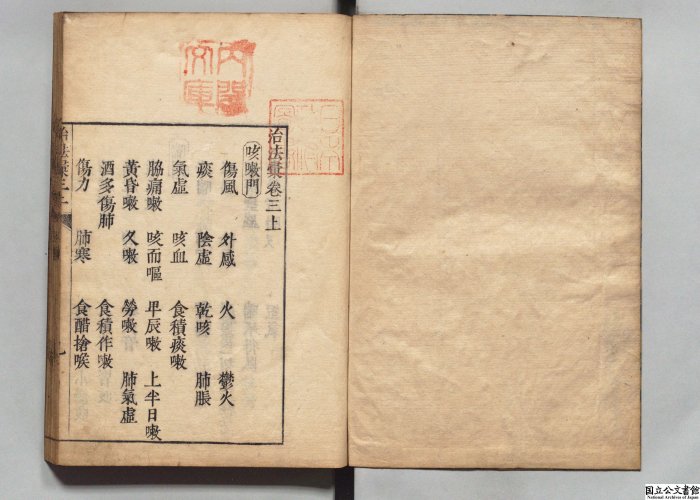 內閣文庫
治法彙卷三上
咳嗽門
傷風 外感 火 鬱火
痰 陰虛 乾咳 肺脹
氣虛 咳血 食積痰嗽
脇痛嗽 咳而嘔 甲辰嗽 上半日嗽
黃昏嗽 久嗽 勞嗽 肺氣虛
酒多傷肺 食積作嗽
傷力 肺寒 食醋搶喉
治法彙三上 一
国立公文書館
National Archives of Japan